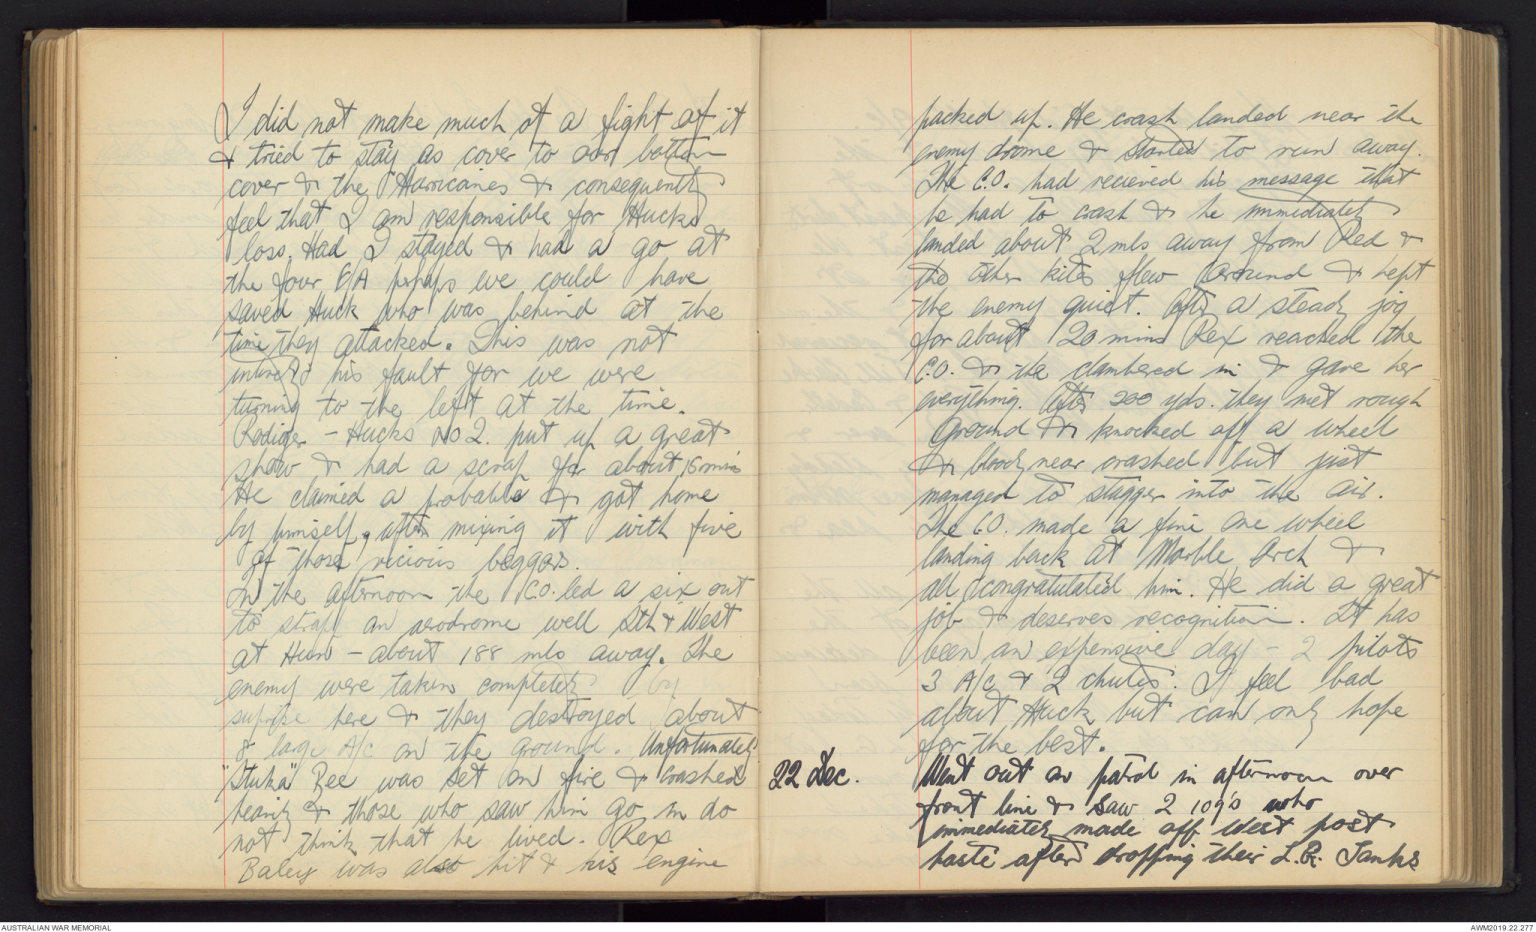 I did not make much of a fight of it
& tried to stay as cover to our bottom
cover & the Harricanes & consequently
feel that I am responsible for Hucks
loss. Had I stayed & had a go at
the four E/A perhaps we could have
saved Huck who was behind at the
time they attacked. This was not
intirely his fault for we were
turning to the left at the time.
Rodiger - Hucks No 2. put up a great
show & had a scrap for about 15 mins
He claimed a probable & got home
by himself, after mixing it with five
of those vicious beggars.
In the afternoon the C.O. led a six out
to straff an aerodrome well Sth & West
at Hun - about 188 mls away. The
enemy were taken completely by
suprise here & they destroyed about
8 large A/c on the ground. Unfortunately
"Stuka" Bee was set on fire & crashed
heavily & those who saw him go in do
not think that he lived. Rex
Baley was also hit & his engine
packed up. He crash landed near the
enemy drome & started to run away.
The C.O. had recieved his message that
he had to crash & he immediately
landed about 2 mls away from Red &
the other kites flew around & kept
the enemy quiet. After a steady jog
for about 20 mins Rex reached the
C.O. & the clambered in & gave her
everything. After 200 yds. they met rough
ground & knocked off a wheel
& bloody near crashed but just
managed to stagger into the air.
The C.O. made a fine one wheel
landing back at Marble Arch &
all congratulated him. He did a great
job & deserves recognition. It has
been an expensive day - 2 pilots
3 A/c & 2 chutes. I feel bad
about Huck but can only hope
for the best.
22 Dec. Went out on patrol in afternoon over
front line & saw 2 109's who
immediately made off West post
haste after dropping their L.R. Tanks
AUSTRALIAN WAR MEMORIAL
AWM2019.22.277